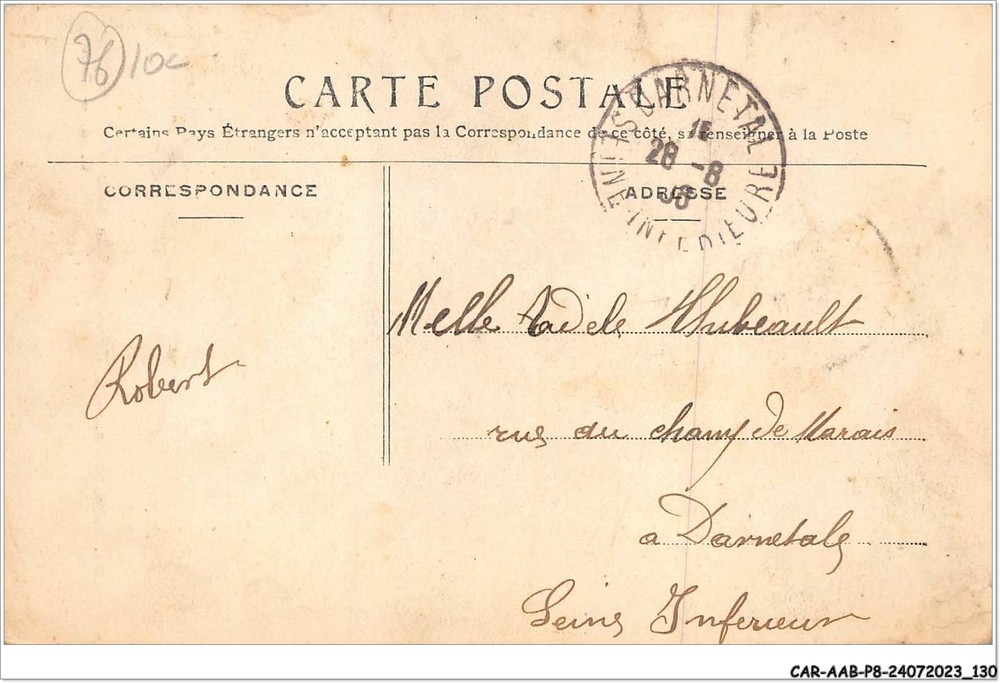 76 10c
CARTE POSTALE
Certains Pays Étrangers n'acceptant pas la Correspondance de ce côté, se renseigner à la Poste
CORRESPONDANCE
ADRESSE
DARNETAL
SEINE-INFERIEURE
15
28 -8
Melle Adèle Thubeault
rue du champ de Marais
à Darnetale
Seine Inferieur
Robert
CAR-AAB-P8-24072023_130